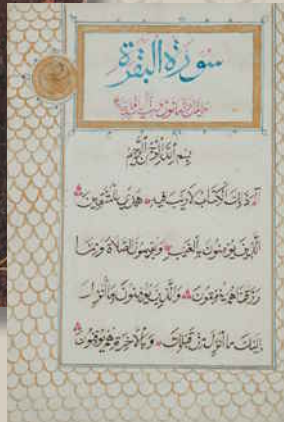 سورة البقرة
بسم الله الرحمن الرحيم
الم ذلك الكتاب لا ريب فيه هدى للمتقين
الذين يؤمنون بالغيب ويقيمون الصلاة ومما
رزقناهم ينفقون والذين يؤمنون بما أنزل
إليك وما أنزل من قبلك وبالآخرة هم يوقنون